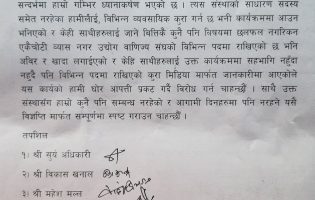 सन्दर्भमा हाम्रो गम्भिर ध्यानाकर्षण भएको छ । त्यस संस्थाको साधारण सदस्य
समेत नरहेका हामीलाई, विभिन्न व्यवसायिक कुरा गर्न छ भनी कार्यक्रममा आउन
भनिएको र केही साथीहरुलाई जाने वित्तिकै कुनै पनि विषयमा छलफल नगरिकन
एकैचोटी व्यास नगर उद्योग वाणिज्य संघको विभिन्न पदमा राखिएको छ भनि
अविर र खादा लगाईएको र केहि साथीहरुलाई उक्त कार्यक्रममा सहभागि नहुँदा
नहुँदै पनि विभिन्न पदमा राखिएको कुरा मिडिया मार्फत जानकारीमा आएकोले
यस कार्यमा हामी घोर आपत्ती प्रकट गर्दै विरोध गर्न चाहन्छौं । साथै उक्त
संस्थासँग हाम्रो कुनै पनि सम्बन्ध नरहेको र आगामी दिनहरुमा पनि नरहने यसै
विज्ञप्ति मार्फत सम्पूर्णमा स्पष्ट गराउन चाहन्छौं ।
तपशिल
१। श्री सूर्य अधिकारी
२। श्री विकास खनाल
३। श्री महेश मल्ल